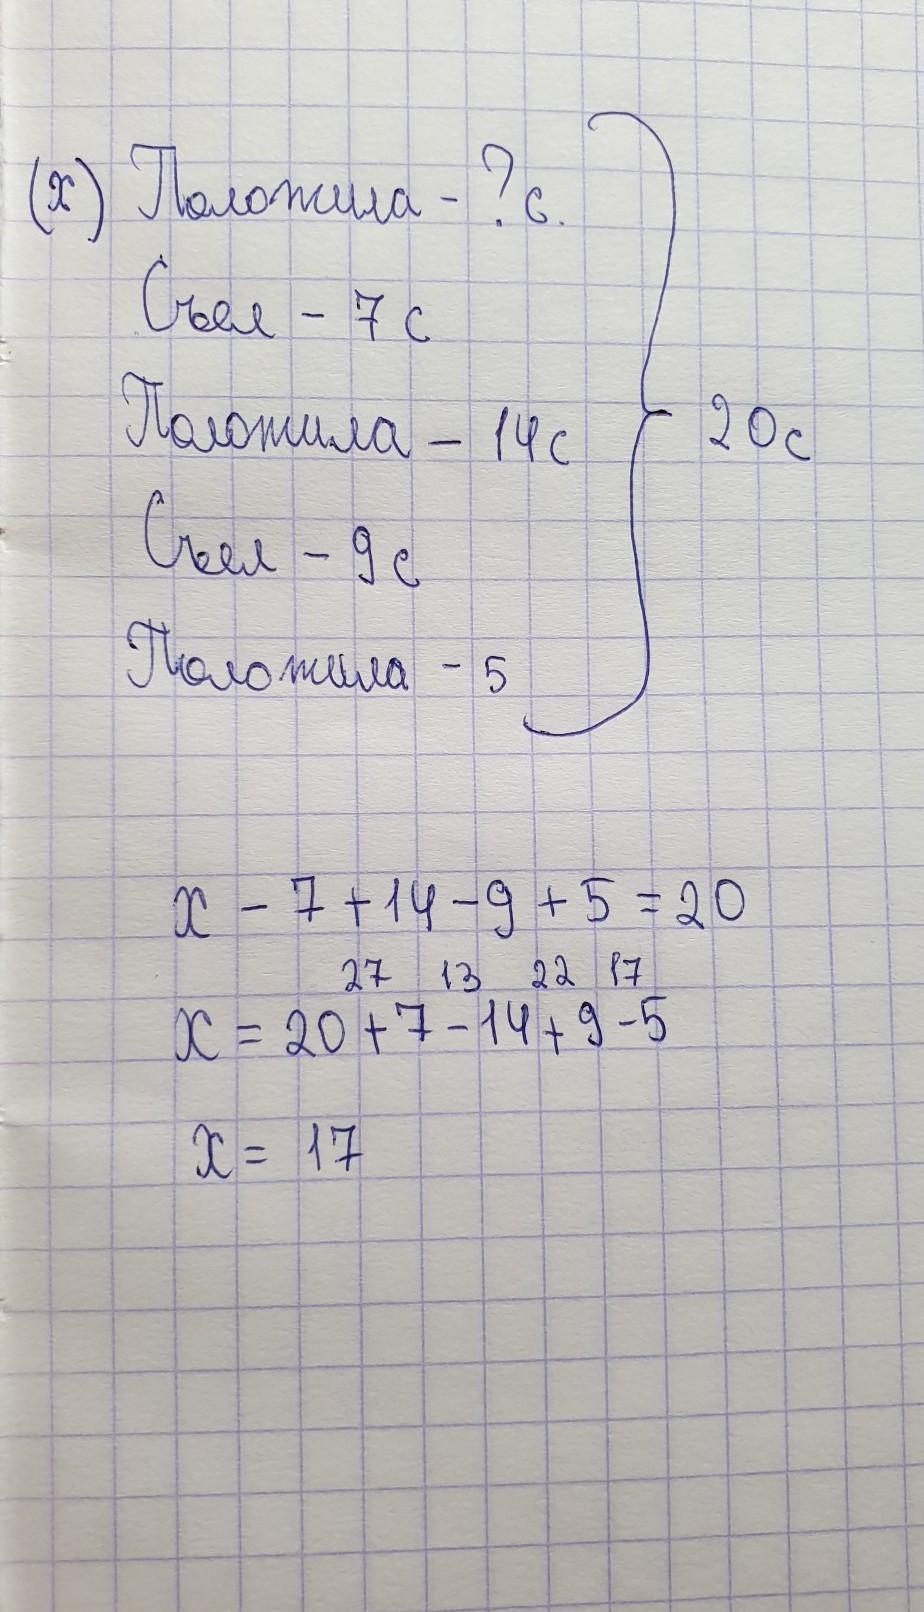 (x) Положила - ? с.
Съел - 7 с
Положила - 14 с
20 с
Съел - 9 с
Положила - 5
x - 7 + 14 - 9 + 5 = 20
27 13 22 17
x = 20 + 7 - 14 + 9 - 5
x = 17